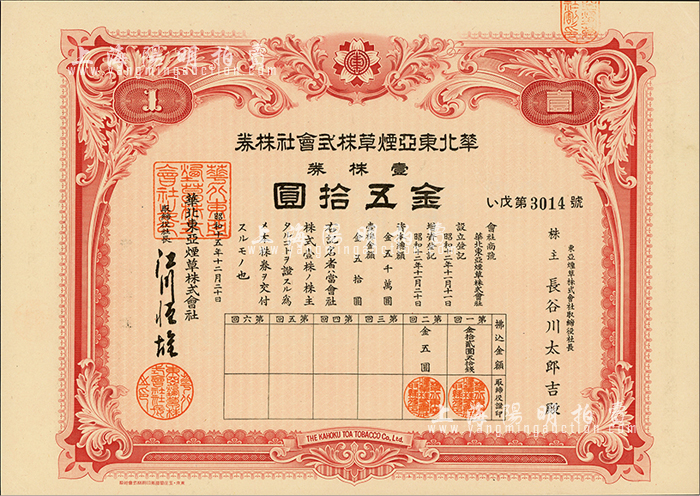 華北東亞煙草株式會社株券
壹株券
金五拾圓
い戊第3014號
東亞煙草株式會社取締役社長
株主 長谷川太郎吉殿
會社商號
華北東亞煙草株式會社
設立登記
昭和十二年十二月十一日
增資登記
資本總額
金五千萬圓
壹株金額
金五拾圓
右記名者ハ當會社
株式壹株ノ株主
タルコトヲ證スル爲
メ本株券ヲ交付
スルモノ也
昭和十五年十二月二十日
華北東亞煙草株式會社
取締役社長
江川恒雄
拂込金額
取締役證印
第一回
金拾貳圓五拾錢
第二回
金五圓
第三回
第四回
第五回
第六回
1
壹
THE KAHOKU TOA TOBACCO Co., Ltd.
上海陽明拍賣
www.yangmingauction.com
上海陽明拍賣
www.yangmingauction.com